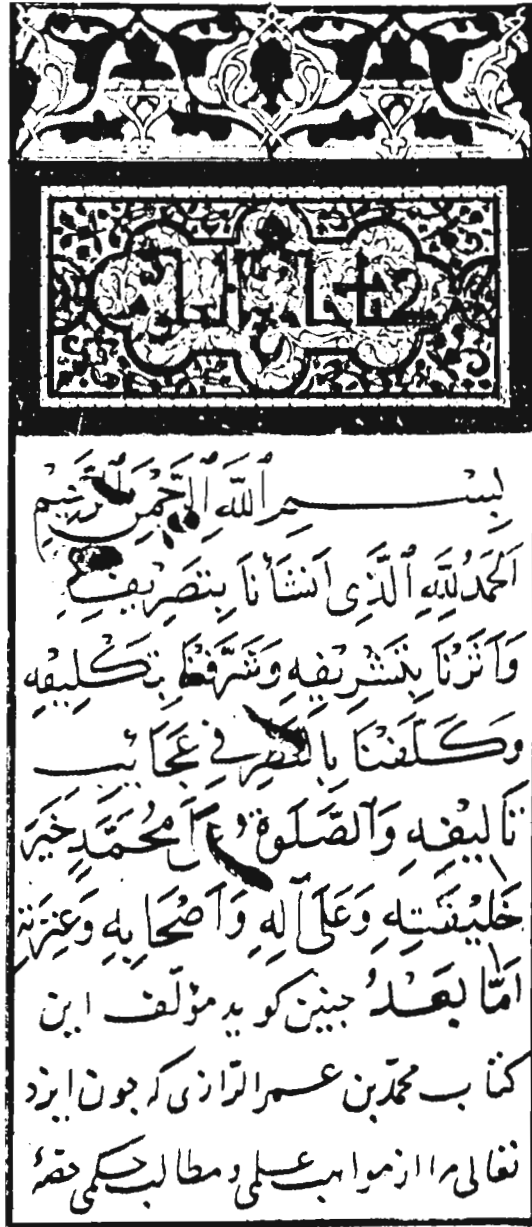 بِسْمِ اللَّهِ الرَّحْمٰنِ الرَّحِيمِ
اَلْحَمْدُ لِلَّهِ الَّذِى اَنْشَأَنَا بِتَصْرِيفِهِ
وَآثَرَنَا بِتَشْرِيفِهِ وَشَرَّفَنَا بِتَكْلِيفِهِ
وَكَلَّفَنَا بِالنَّظَرِ فِي عَجَائِبِ
تَأْلِيفِهِ وَالصَّلَوةُ عَلَى مُحَمَّدٍ خَيْرِ
خَلِيقَتِهِ وَعَلَى آلِهِ وَاَصْحَابِهِ وَعِتْرَتِهِ
اَمَّا بَعْدُ جنین کوید مؤلّف این
کتاب محمّد بن عمر الرّازی که جون ایزد
تعالی ما را از مواهب علمی و مطالب حکمی حقهٔ